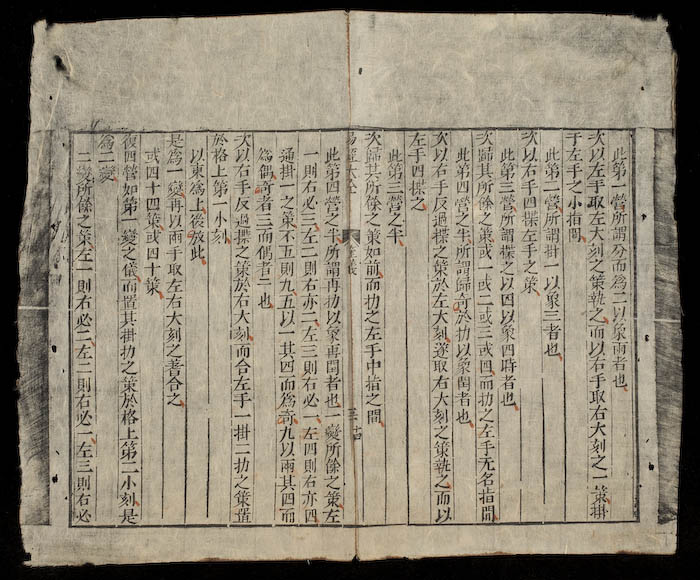 此第一營所謂分而為二以象兩者也
次以左手取左大刻之策執之而以右手取右大刻之一策掛
于左手之小指間
此第一營所謂掛一以象三者也
次以右手四揲左手之策
此第三營所謂揲之以四以象四時者也
次歸其所餘之策或一或二或三或四而扐之左手无名指間
此第四營之半所謂歸奇於扐以象閏者也
次以右手反過揲之策於左大刻遂取右大刻之策執之而以
左手四揲之
此第三營之半
次歸其所餘之策如前而扐之左手中指之間
易經大全 筮儀 三十四
此第四營之半所謂再扐以象再閏者也一變所餘之策左
一則右必三左二則右亦二左三則右必一左四則右亦四
通掛一之策不五則九五以一其四而為奇九以兩其四而
為偶奇者三而偶者一也
次以右手反過揲之策於右大刻而合左手一掛二扐之策置
於格上第一小刻
以東為上後放此
是為一變再以兩手取左右大刻之蓍合之
或四十四策或四十策
復四營如第一變之儀而置其掛扐之策於格上第二小刻是
為二變
二變所餘之策左一則右必二左二則右必一左三則右必